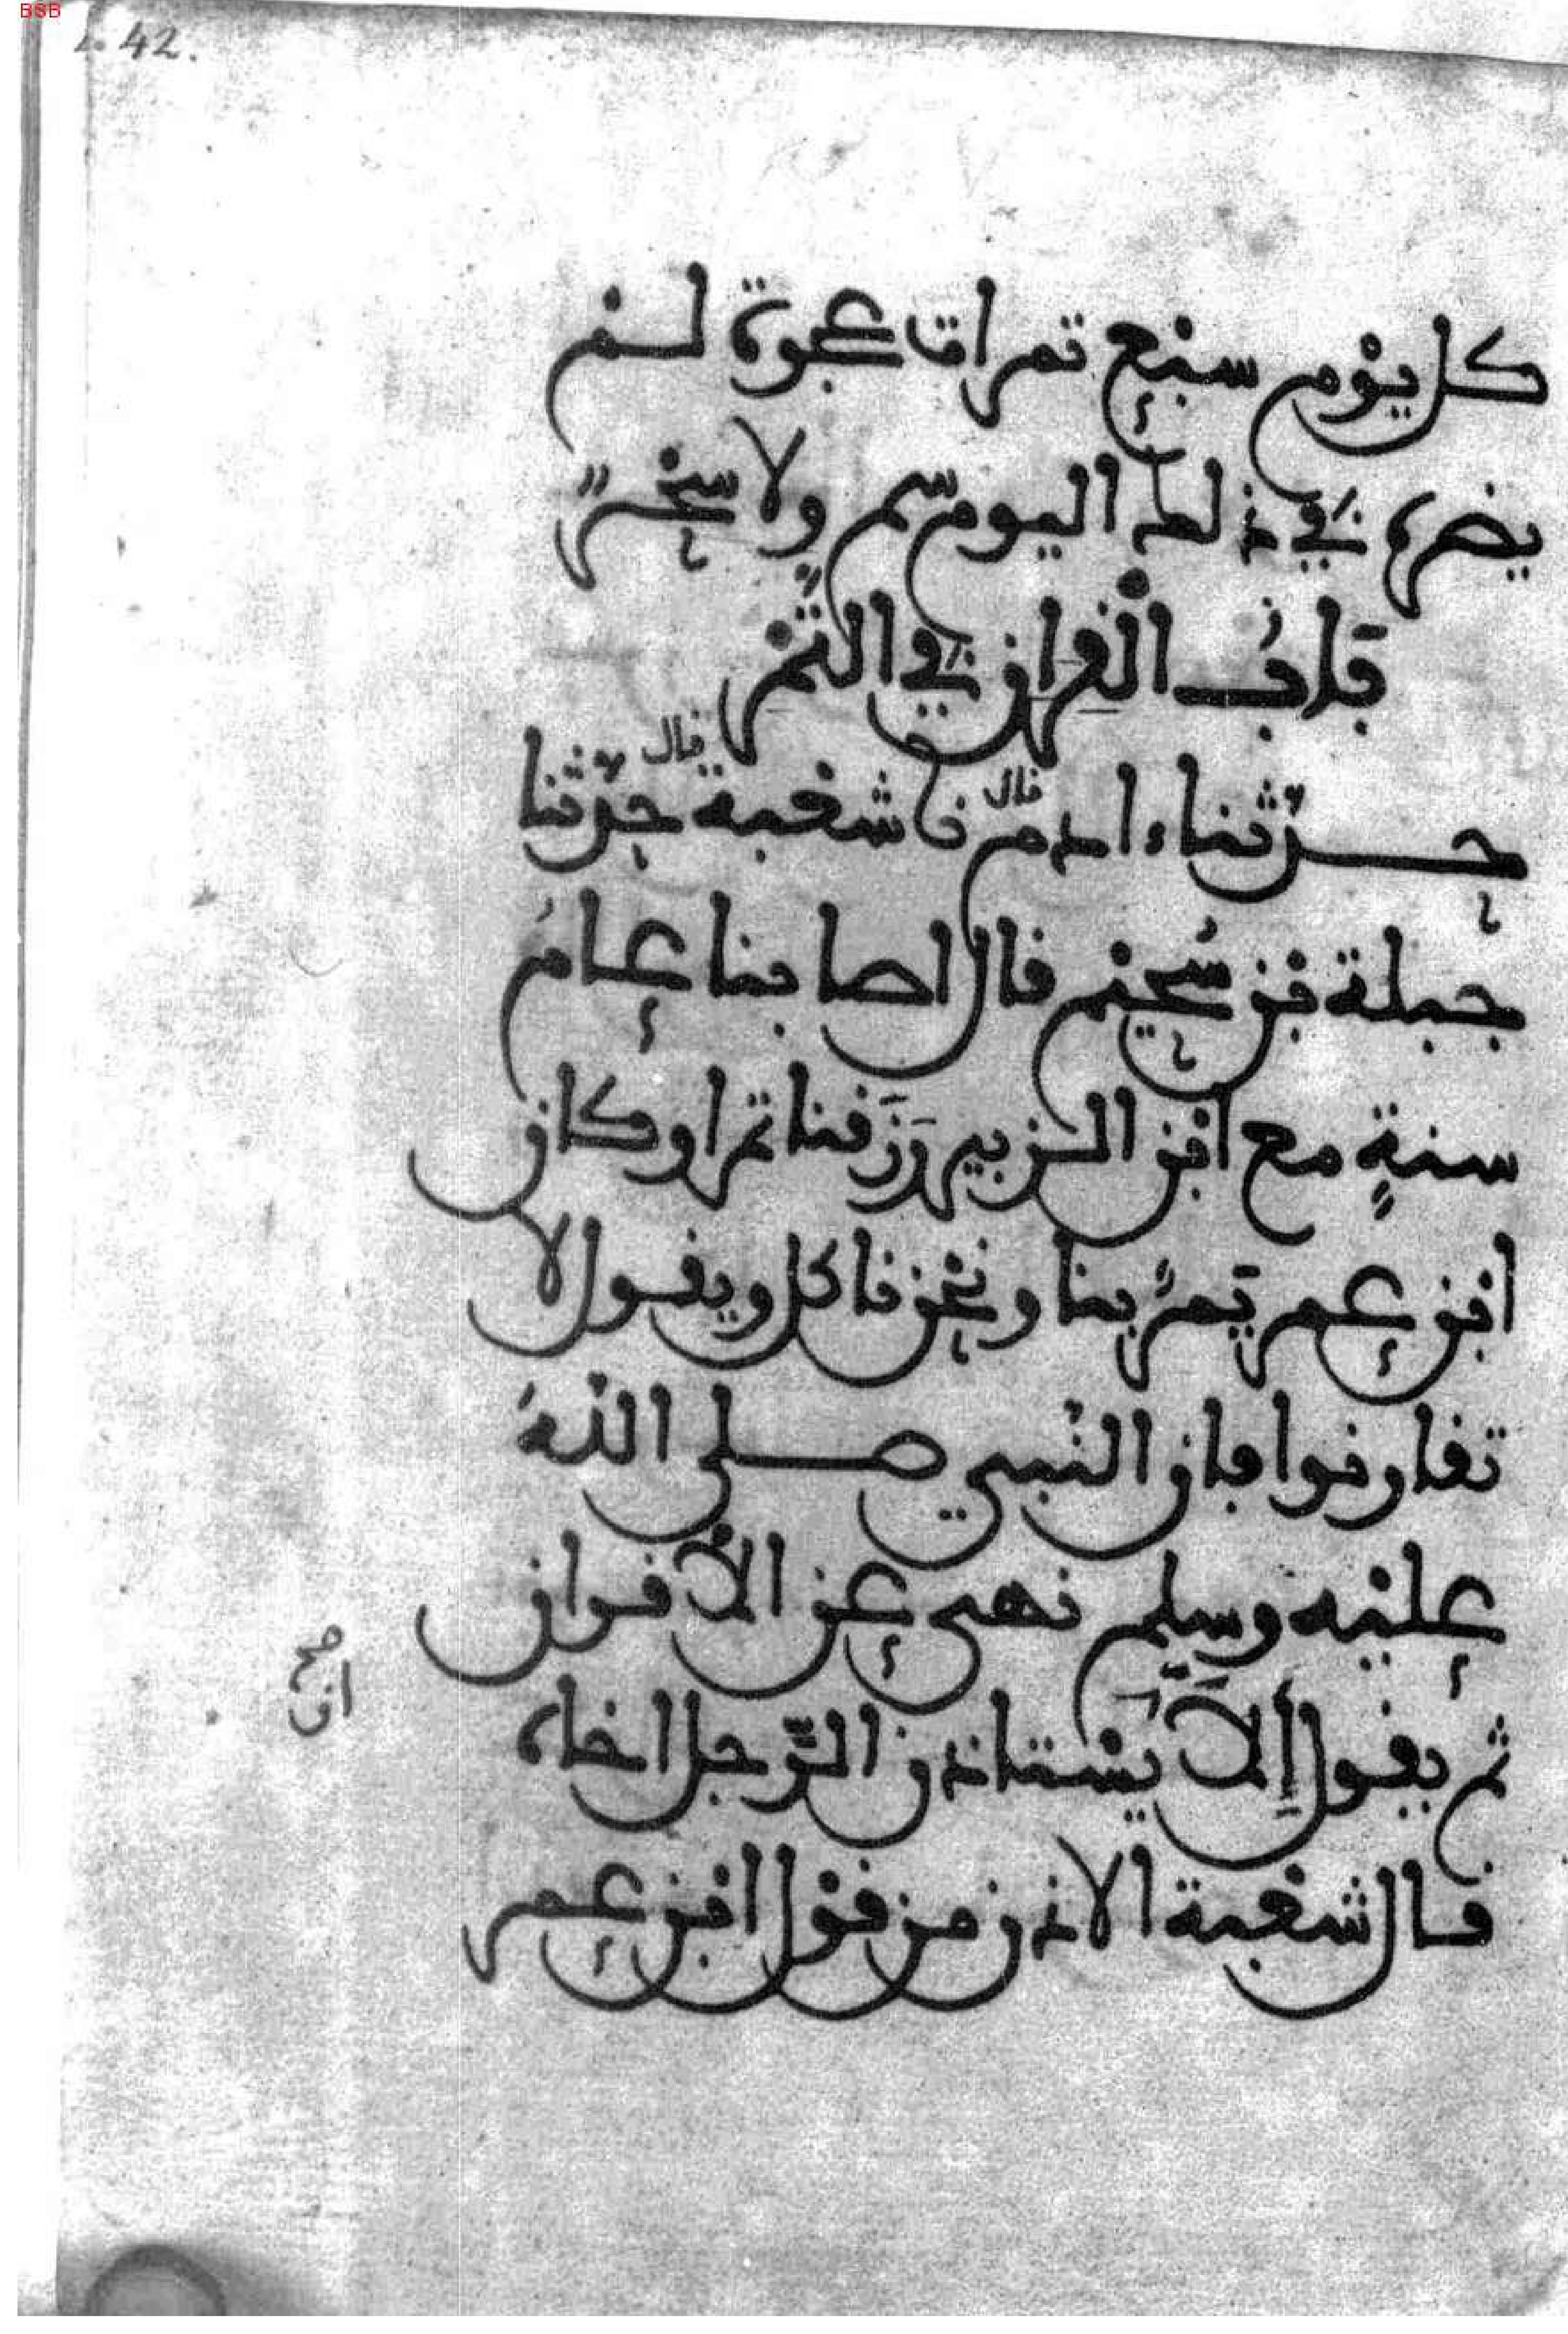 BSB
42.
كل يوم سبع تمرات عجوة لم
يضره في ذلك اليوم سم ولا سحر
باب القران في التمر
حدثنا ءادم قال نا شعبة قال حدثنا
جبلة بن سحيم قال اصابنا عام
سنة مع ابن الزبير رزقنا تمرا وكان
ابن عمر يمر بنا ونحن ناكل ويقول لا
تقارنوا فان النبي صلى الله
عليه وسلم نهى عن الاقران
ثم يقول إلا يستاذن الرجل اخاه
ان صح
قال شعبة الاذن من قول ابن عمر